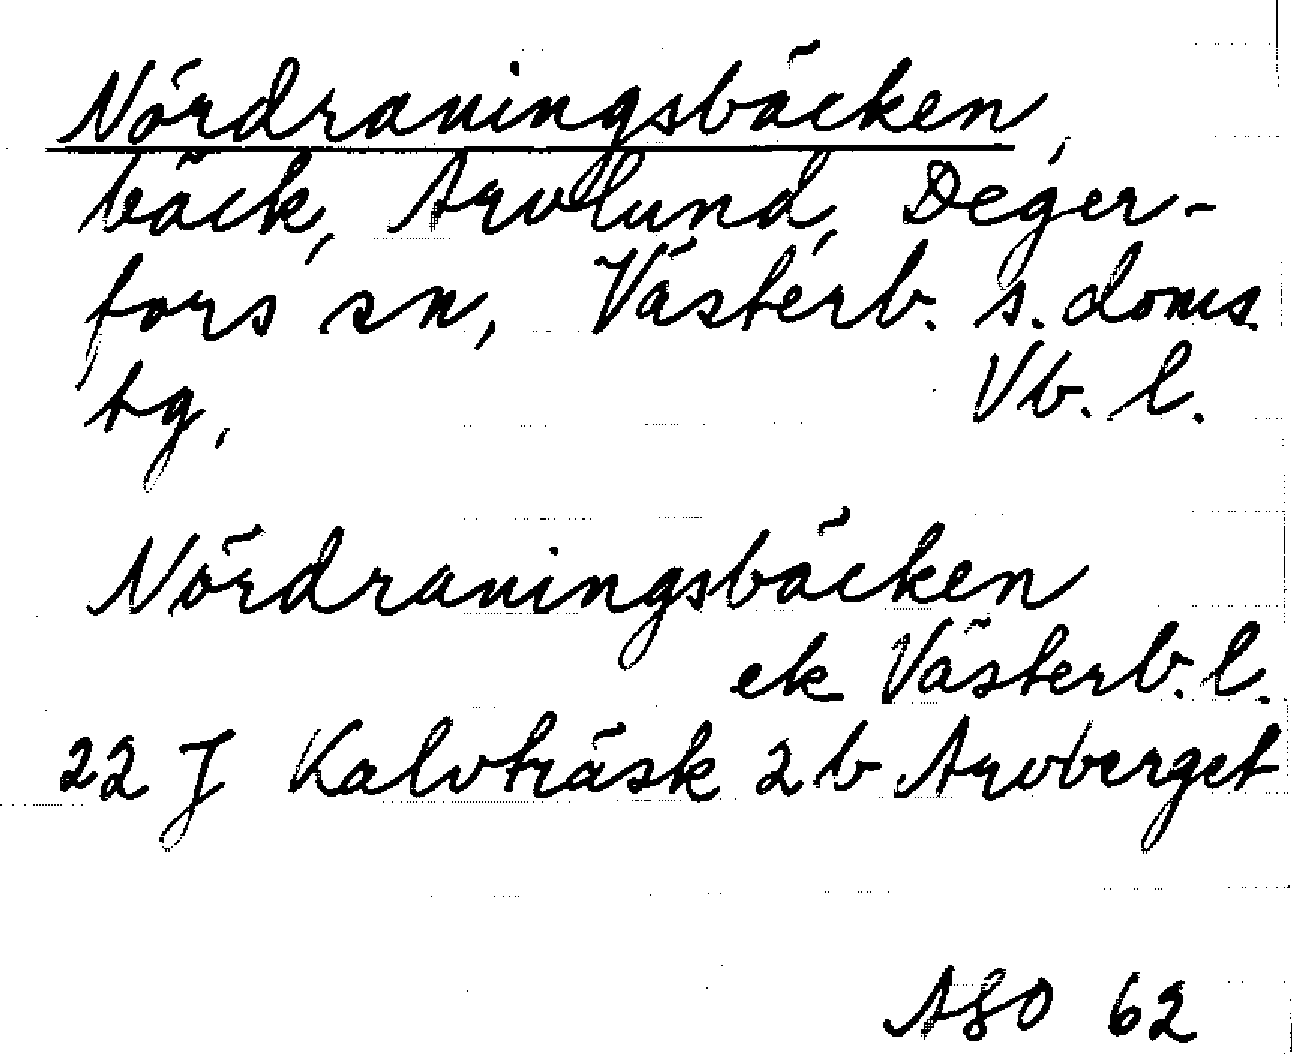 Nördraningsbäcken,
bäck, Arvlund, Deger-
fors sn, Västerb. s. doms.
tg, Vb. l.
Nördraningsbäcken
ek Västerb. l.
22 J Kalvträsk 2 b Arvberget
ASO 62